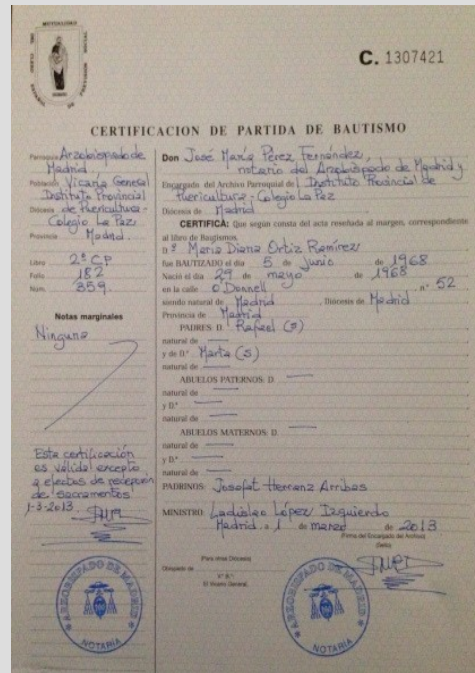 MUTUALIDAD DEL CLERO
C. 1307421
CERTIFICACION DE PARTIDA DE BAUTISMO
Parroquia Arzobispado de
Madrid
Población Vicaría General
Instituto Provincial
Diócesis de Puericultura-
Colegio La Paz
Provincia Madrid.
Libro 2ª C.P
Folio 182
Núm. 359
Notas marginales
Ninguna
Esta certificación
es válida excepto
a efectos de recepción
de sacramentos
1-3-2013
Don José María Pérez Fernández,
notario del Arzobispado de Madrid y
Encargado del Archivo Parroquial de Instituto Provincial de
Puericultura - Colegio La Paz
Diócesis de Madrid
CERTIFICA: Que según consta del acta reseñada al margen, correspondiente
al libro de Bautismos,
D.ª Maria Diana Ortiz Ramirez
fue BAUTIZADO el día 5 de Junio de 1968
Nació el día 29 de mayo de 1968
en la calle O'Donnell n° 52
siendo natural de Madrid, Diócesis de Madrid
Provincia de Madrid
PADRES: D. Rafael (s)
natural de
y de D.ª Marta (s)
natural de
ABUELOS PATERNOS: D.
natural de
y D.ª
natural de
ABUELOS MATERNOS: D.
natural de
y D.ª
natural de
PADRINOS: Josefat Herranz Arribas
MINISTRO: Ladislao López Izquierdo
Madrid, a 1 de marzo de 2013
(Firma del Encargado del Archivo)
(Sello)
(Para otras Diócesis)
Obispado de
V.º B.º:
El Vicario General,
ARZOBISPADO DE MADRID
NOTARÍA
ARZOBISPADO DE MADRID
NOTARÍA